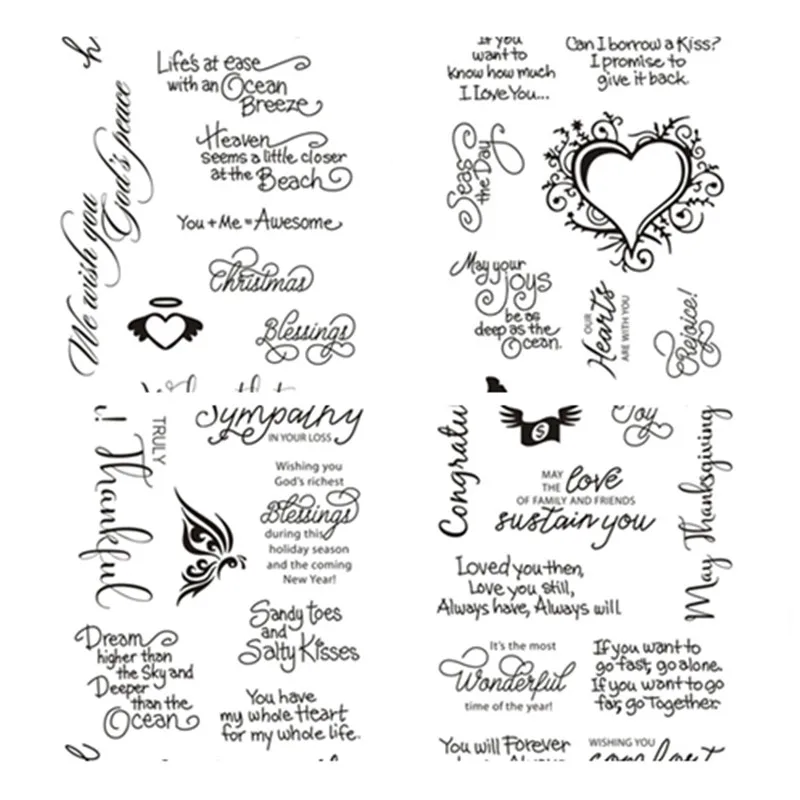 We wish you
God's peace
Life's at ease
with an Ocean
Breeze
Heaven
seems a little closer
at the Beach
You + Me = Awesome
Christmas
Blessings
If you
want to
know how much
I Love You...
Can I borrow a Kiss?
I promise to
give it back.
Seas
the Day
May your
joys
be as
deep as the
Ocean.
OUR
Hearts
ARE WITH YOU
Rejoice!
! Thankful
TRULY
Sympathy
IN YOUR LOSS
Wishing you
God's richest
Blessings
during this
holiday season
and the coming
New Year!
Sandy toes
and
Salty Kisses
Dream
higher than
the Sky and
Deeper
than the
Ocean
You have
my whole Heart
for my whole life.
Congratu
$
Joy
MAY
THE love
OF FAMILY AND FRIENDS
sustain you
May Thanksgiving
Loved you then,
Love you still,
Always have, Always will.
It's the most
Wonderful
time of the year!
If you want to
go fast, go alone.
If you want to go
far, go Together.
You will Forever
WISHING YOU
comfort